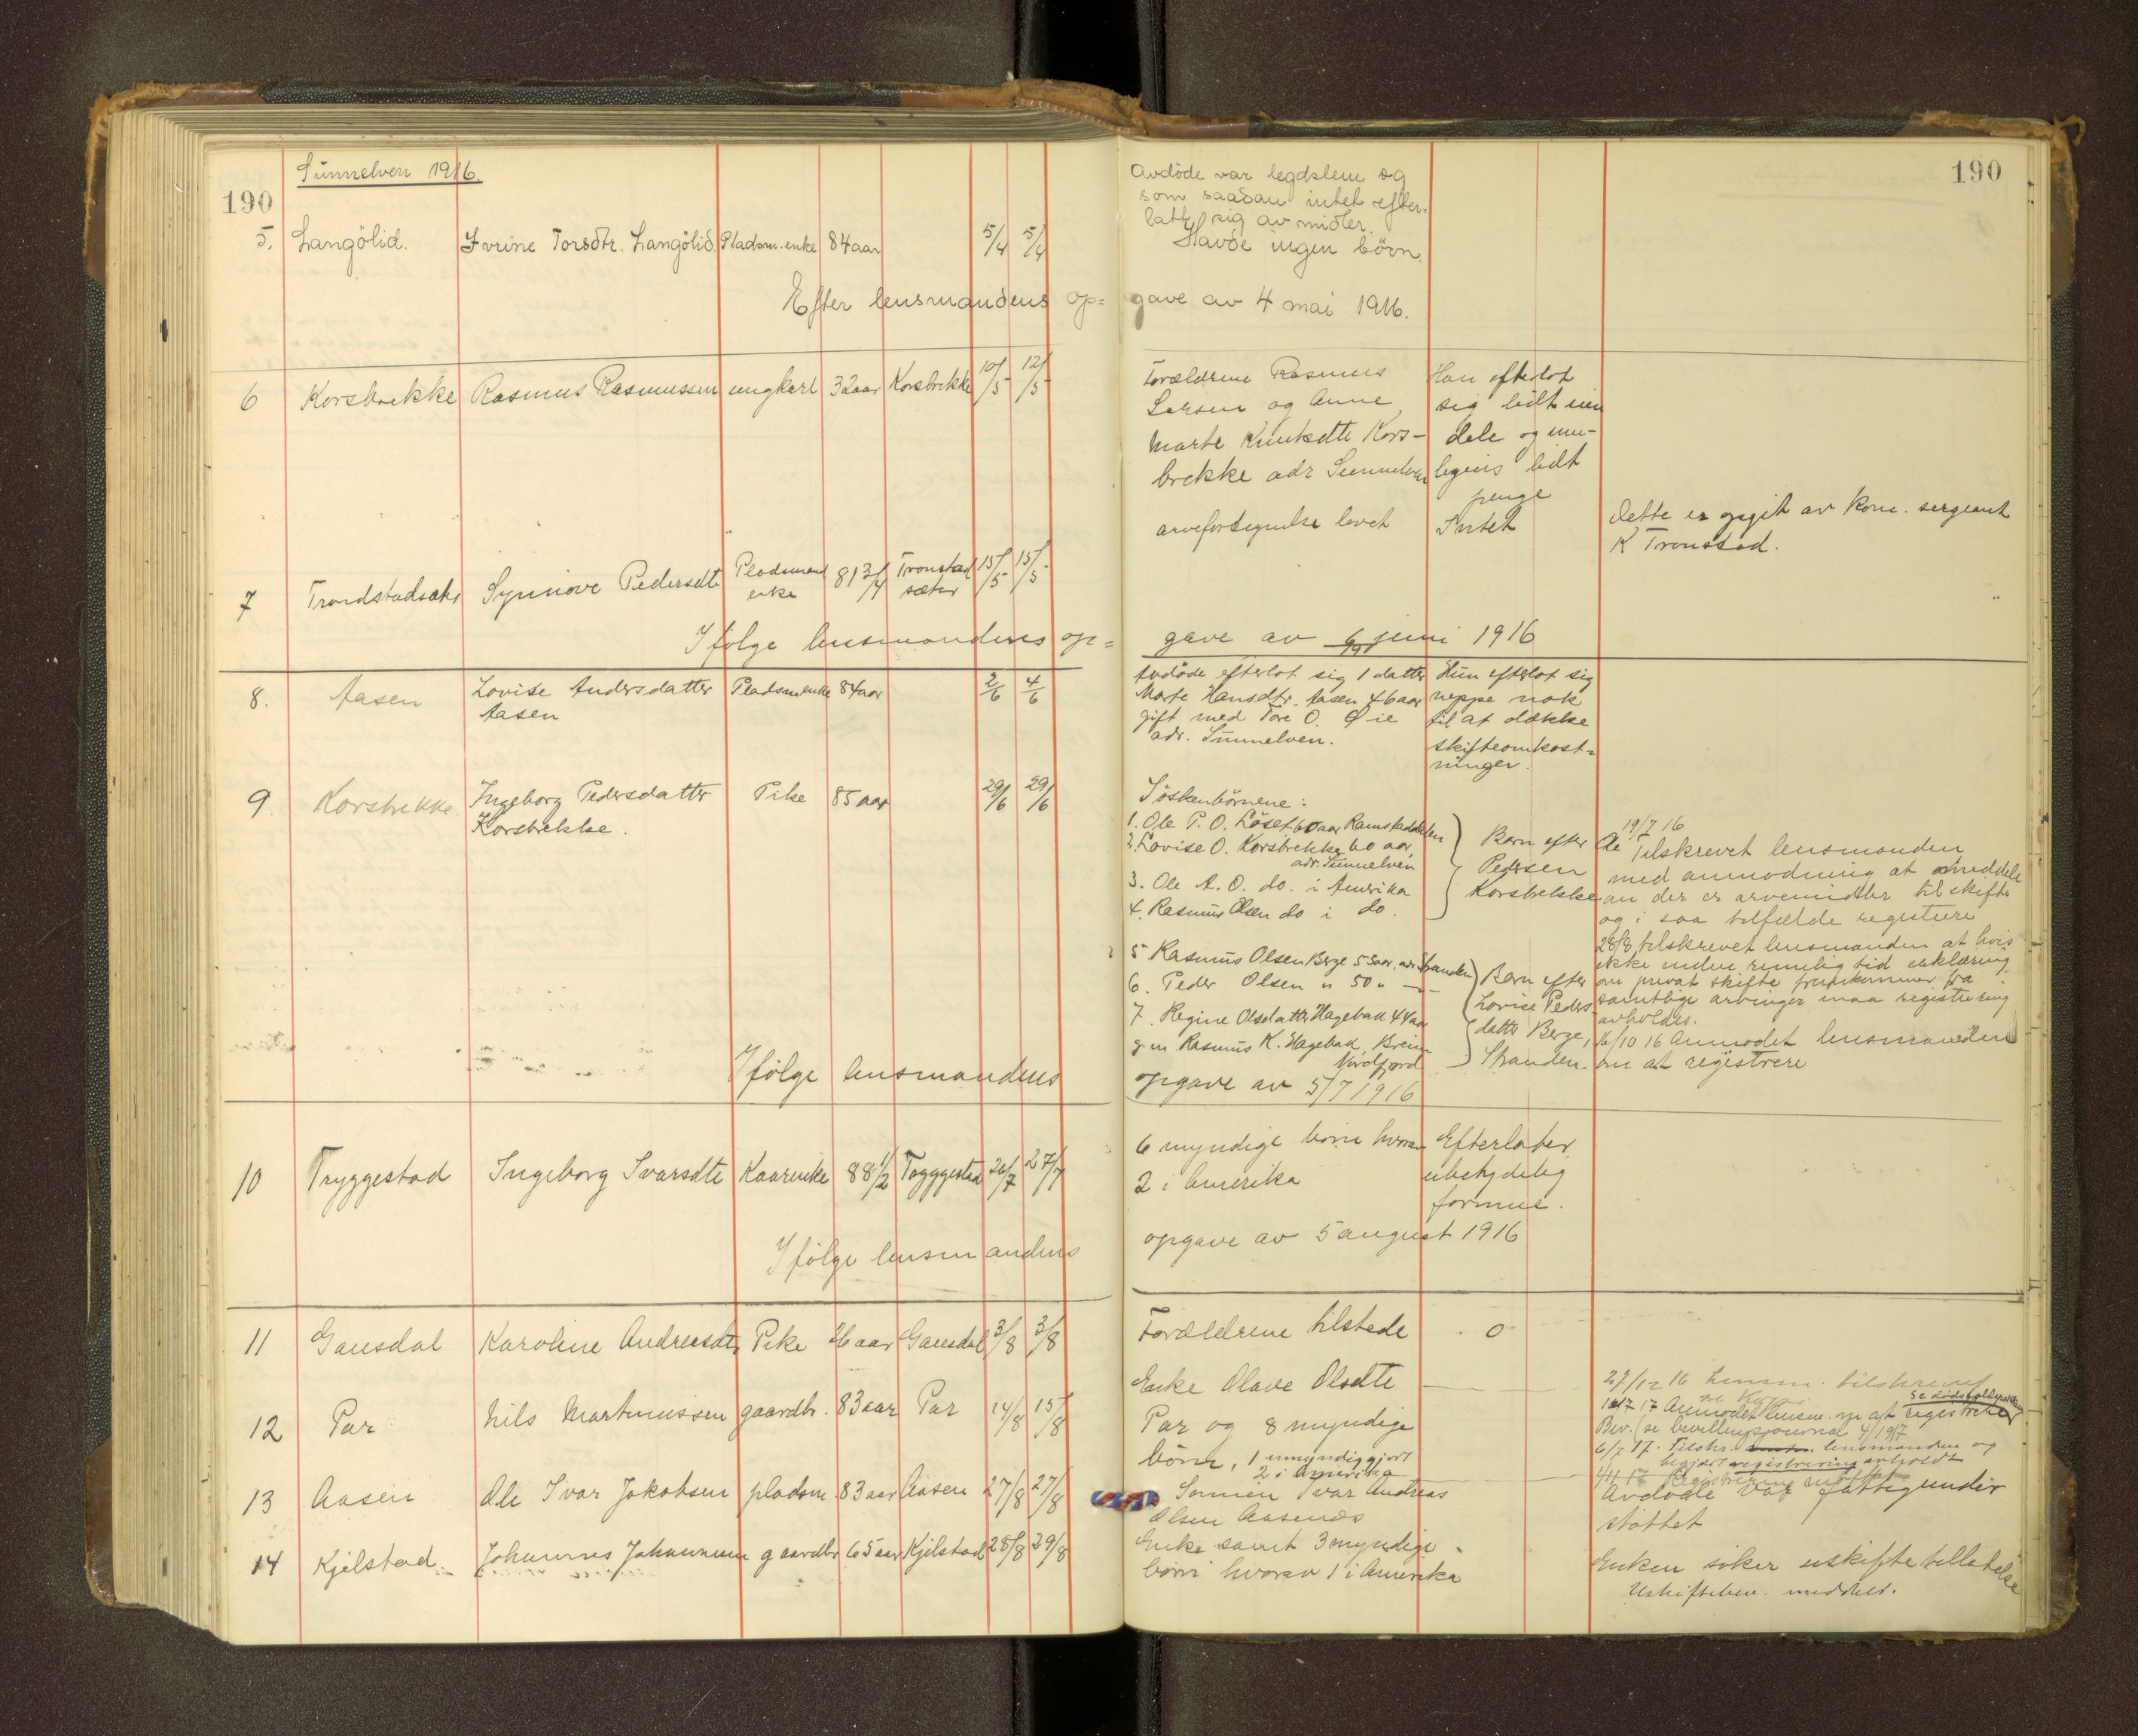 Sunnelven 1916.
190
190
Avdöde var legdslem og
som saadan intet efter-
latt sig av midler.
5. Langölid. Ivrine Torsdtr. Langölid. Pladsm. enke 84 aar 5/4 5/4 Havde ingen börn.
Efter lensmandens op= gave av 4 mai 1916.
6 Korsbrekke Rasmus Rasmussen ungkarl 32 aar Korsbrekke 10/5 12/5 Forældrene Rasmus Han efterlot
Larsen og Anne sig lidt
Marte Knutsdtr Kors- dele og
brekke adr Sunnelven lidt
penge
arvefortegnelse lovet Intet Dette er opgit av sergeant
K Tronstad.
7 Trondstadsæter Synnöve Pedersdtr Pladsmand enke 81 3/4 Tronstad sæter 15/5 15/5
Ifölge lensmandens op= gave av juni 1916
8. Aasen Lovise Andersdatter Pladsmenke 84 aar 2/6 4/6 Avdöde efterlot sig 1 datter Hun efterlot sig
Aasen Marte Hansdtr. Aasen 46 aar neppe nok
gift med Tore O. Øie til at dække
adr. Sunnelven. skifteomkost=
ninger.
9. Korsbrekke Ingeborg Pedersdatter Pike 85 aar 29/6 29/6 Söskenbörnene:
Korsbrekke.
1. Ole P. O. Löset 60 aar Ramstaddalen
2. Lovise O. Korsbrekke 60 aar
adr. Sunnelven
3. Ole A. O. do. i Amerika
4. Rasmus Olsen do i do.
Born efter Ole
Pedersen
Korsbrekke
19/7 16
Tilskrevet lensmanden
med anmodning at meddele
om der er arvemidler til skifte
og i saa tilfælde registrere
5 Rasmus Olsen Berge 53 aar, adr. Stranden
6. Peder Olsen " 50 " —"—
7. Regine Olsdatter Hagebak 44 aar
g. m. Rasmus K. Hagebak, Breim
Nordfjord
Born efter
Lovise Peders-
datter Berge,
Stranden.
28/8 tilskrevet lensmanden at hvis
ikke inden rimelig tid erklæring
om privat skifte fremkommer fra
samtlige arvinger maa registrering
avholdes.
16/10 16 Anmodet lensmanden
om at registrere
Ifölge lensmandens opgave av 5/7 1916
10 Tryggestad Ingeborg Ivarsdtr Kaarenke 88 1/2 Tryggestad 26/7 27/7 6 myndige börn hvorav Efterlater
2 i Amerika ubetydelig
formue.
Ifölge lensmandens opgave av 5 august 1916
11 Gausdal Karoline Andreasdtr Pike 26 aar Gausdal 3/8 3/8 Forældrene tilstede 0
12 Par Nils Martinussen gaardbr. 83 aar Par 14/8 15/8 Enke Olave Olsdtr
Par og 8 myndige
börn, 1 umyndiggjort
2 i Amerika
27/12 16 Lensm. tilskrevet
17 Anmodet lensm. om at registrere
Bev. (se bevillingsjournal 4/1917
6/7 17. Tilskr. lensmanden og
begjært registrering avholdt
Registrering
13 Aasen Ole Ivar Jakobsen pladsm 83 aar Aasen 27/8 27/8 Sonnen Ivar Andreas Avdöde var fattigunder
Olsen Aasenes stöttet
14 Kjelstad. Johannes Johannessen gaardbr 65 aar Kjelstad 28/8 29/8 Enke samt 3 myndige Enken söker uskiftetilladelse
börn hvorav 1 i Amerika Uskiftebev. meddelt.